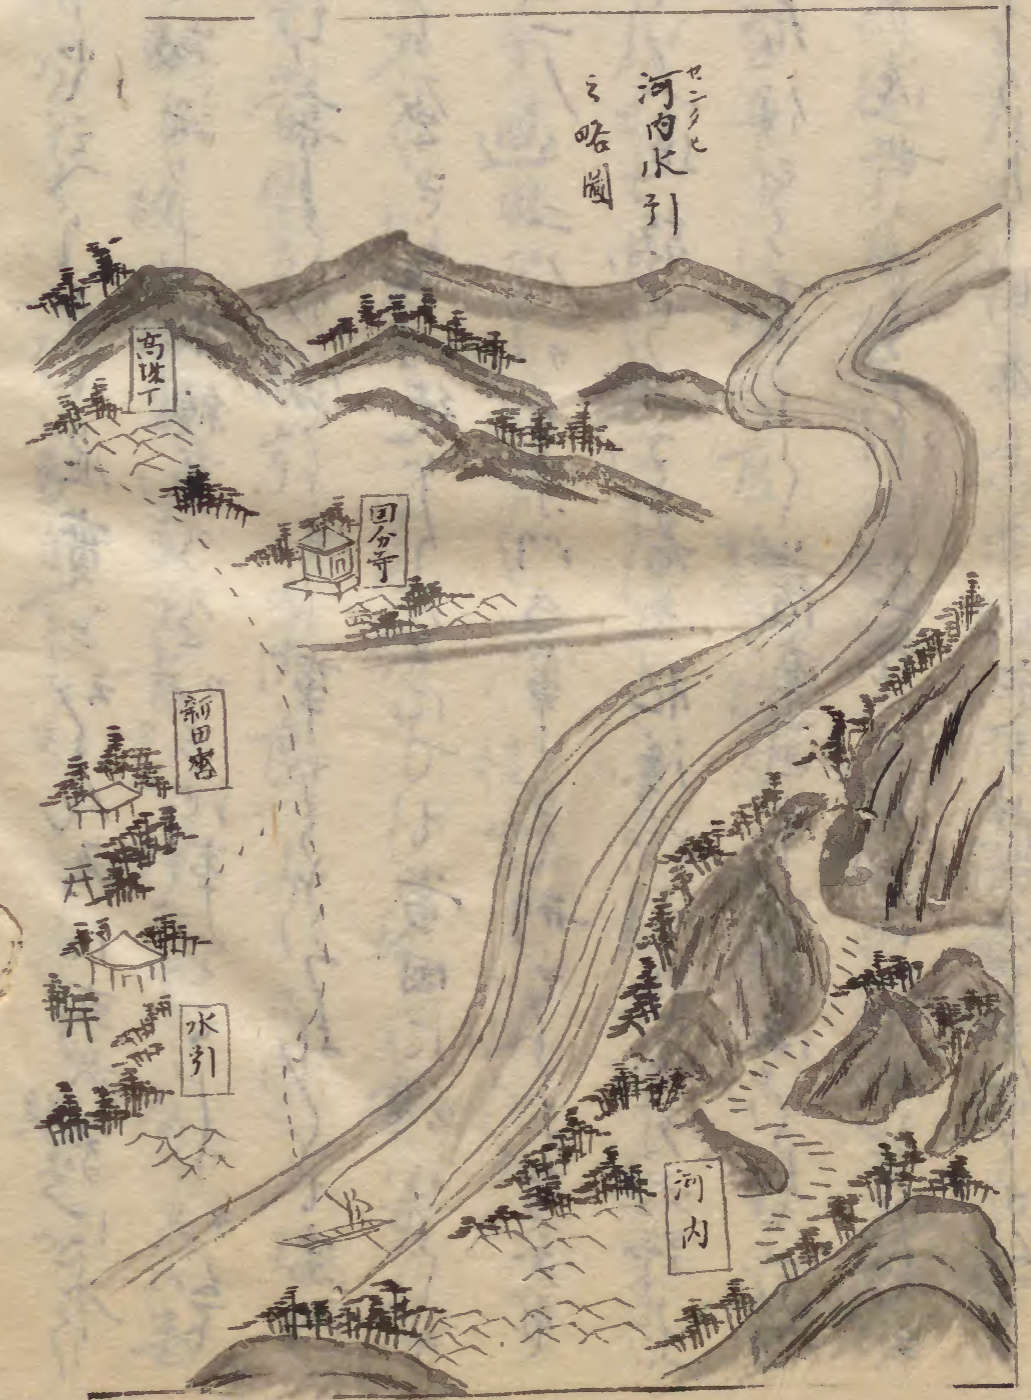 センタセ
河内水引
之略圖
高城丁
国分寺
新田宮
水引
河内